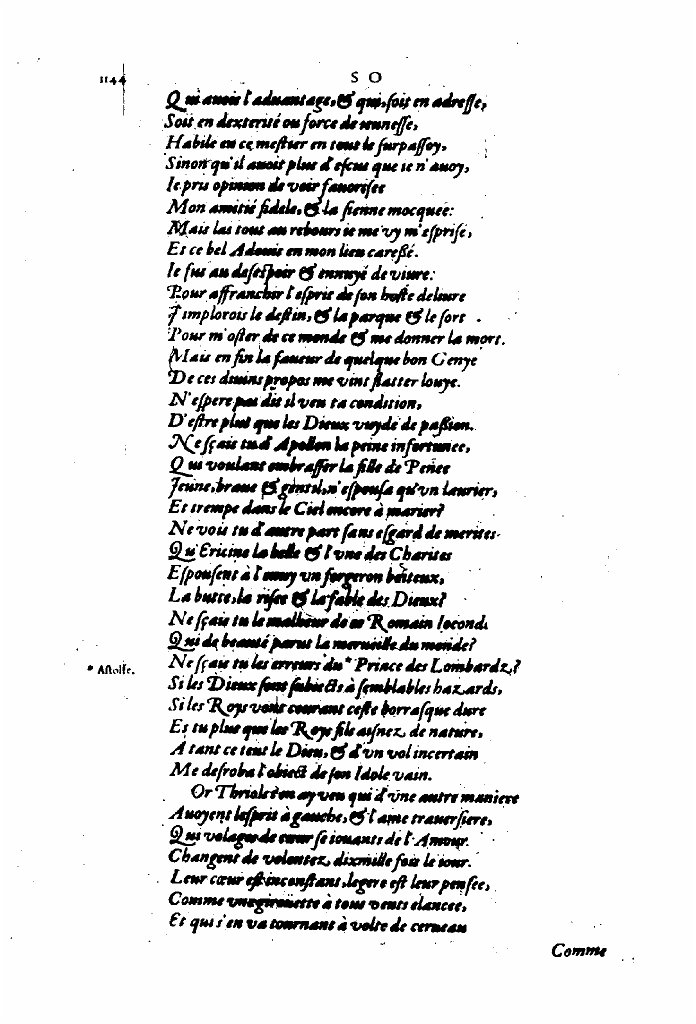 1144
S O
Qui auoit l'aduantage, & qui, soit en adresse,
Soit en dexterité ou force de ieunesse,
Habile en ce mestier en tout le surpassoy,
Sinon qu'il auoit plus d'escus que ie n'auoy,
Ie pris opinion de voir fauorisee
Mon amitié fidele, & la sienne mocquee:
Mais las tout au rebours ie me vy m'esprisé,
Et ce bel Adonis en mon lieu caressé.
Ie fus au desespoir & ennuyé de viure:
Pour affranchir l'esprit de son hoste deliure
J'implorois le destin, & la parque & le sort .
Pour m'oster de ce monde & me donner la mort.
Mais en fin la faueur de quelque bon Genye
De ces diuins propos me vint flatter l'ouye.
N'espere pas dit il veu ta condition,
D'estre plus que les Dieux vuyde de passion.
Ne sçais tu d'Apollon la peine infortunee,
Qui voulant embrasser la fille de Penee
Jeune, braue & gentil, n'espousa qu'vn laurier,
Et trempe dans le Ciel encore à marier?
Ne vois tu d'autre part sans esgard de merites
Qu'Ericine la belle & l'vne des Charites
Espousent à l'enuy vn forgeron boiteux,
La butte, la risee & la fable des Dieux?
Ne sçais tu le malheur de ce Romain Iocond,
Qui de beauté parut la merueille du monde?
Ne sçais tu les erreurs du * Prince des Lombardz?
* Astolfe.
Si les Dieux sont subiects à semblables hazards,
Si les Roys vont courant ceste borrasque dure
Es tu plus que les Roys fils aisnez de nature,
A tant ce teut le Dieu, & d'vn vol incertain
Me desroba l'obiect de son Idole vain.
Or Thriolet en ay veu qui d'vne autre maniere
Auoyent l'esprit à gauche, & l'ame trauersiere,
Qui volages de cœur se iouants de l'Amour.
Changent de volontez, dix mille fois le iour.
Leur cœur est inconstant, legere est leur pensee,
Comme vne girouette à tous vents elancee,
Et qui s'en va tournant à volte de cerueau
Comme